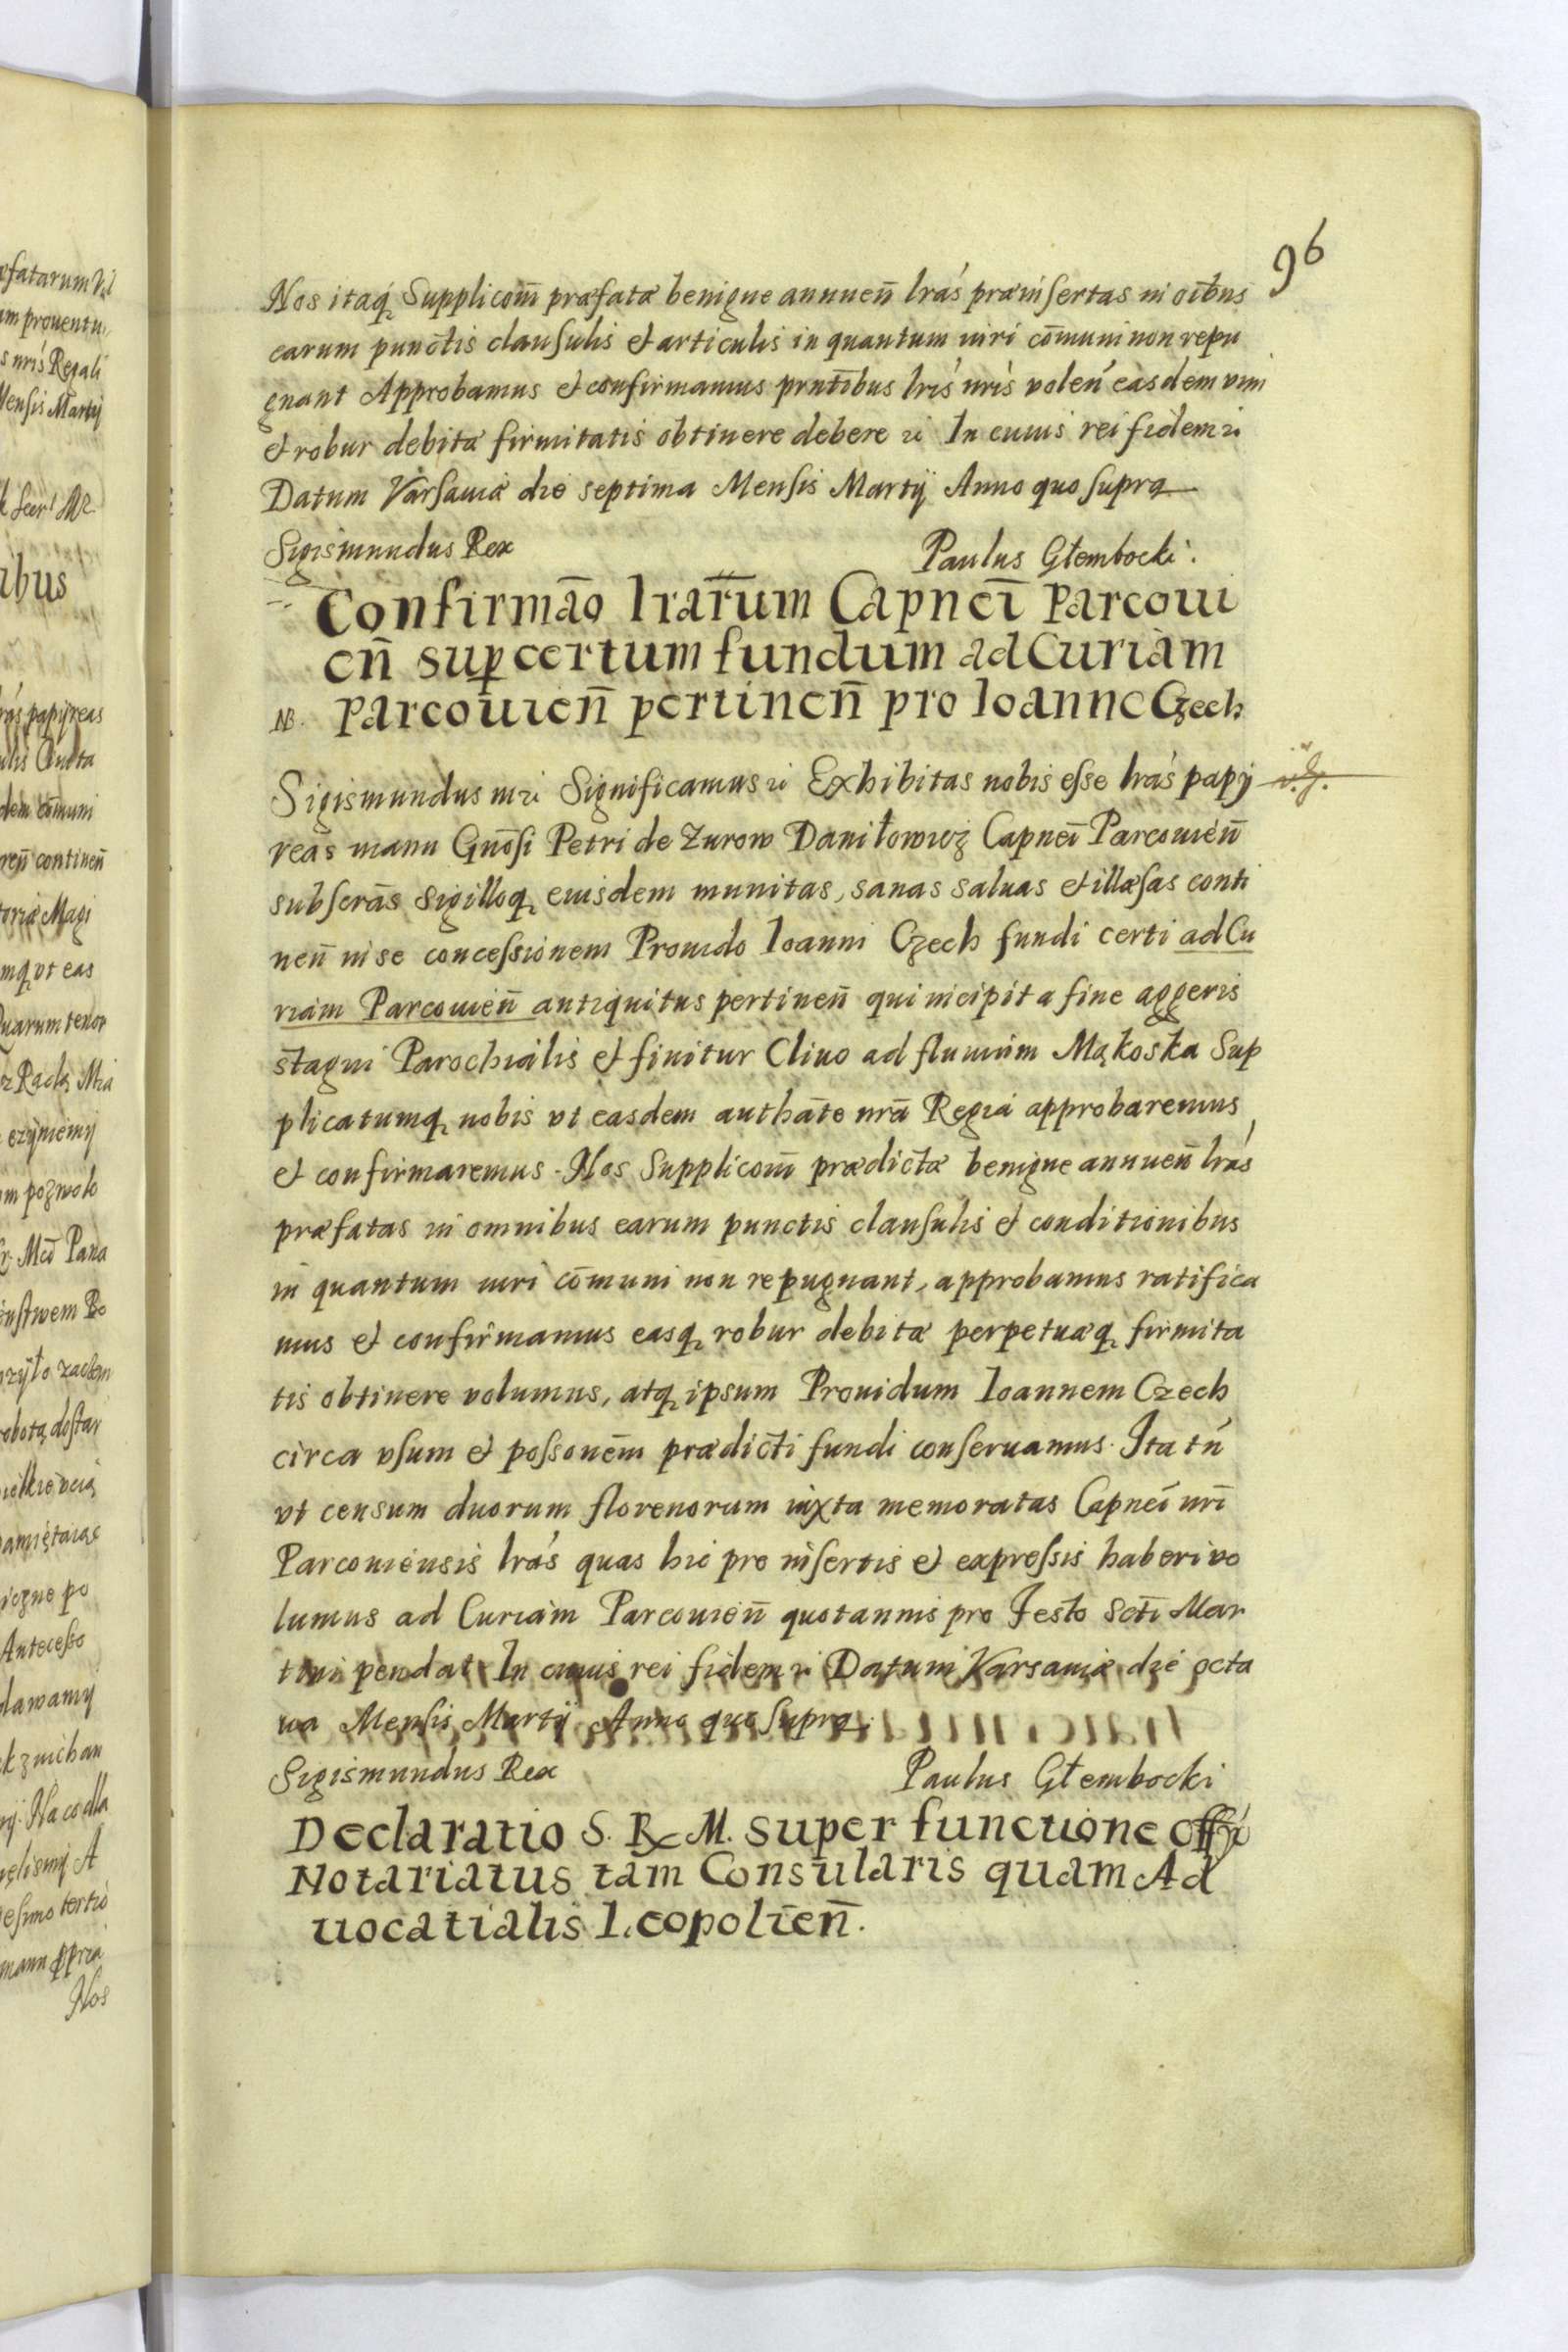 96
Nos itaq Suppliconi præfatæ benigne annuen̄ lrás præinsertas in oībus
earum punctis clausulis et articulis in quantum iuri cōmuni non repu
gnant Approbamus et confirmamus prntibus lris nris volen̄ easdem vim
et robur debitæ firmitatis obtinere debere In cuius rei fidem
Datum Varsauiæ die septima Mensis Martij Anno quo supra
Sigismundus Rex Paulus Głembocki
Confirmāo lrarūm Capnei Parcoui
en̄ sup certum fundum ad Curiam
NB. Parcouien̄ pertinen̄ pro Ioanne Czech
Sigismundus Significamus Exhibitas nobis esse lrás papy
reas manu Gnōsi Petri de Zurow Daniłowicz Capnei Parcouien̄
subscrās sigilloq eiusdem munitas, sanas saluas et illæsas conti
nen̄ in se concessionem Prouido Ioanni Czech fundi certi ad Cu
riam Parcouien̄ antiquitus pertinen̄ qui incipit a fine aggeris
stagni Parochialis et finitur Cliuo ad fluuium Mąkoska Sup
plicatumq nobis vt easdem authāte nrā Regia approbaremus
et confirmaremus. Nos Suppliconi prædictæ benigne annuen̄ lrás
præfatas in omnibus earum punctis clausulis et conditionibus
in quantum iuri cōmuni non repugnant, approbamus ratifica
mus et confirmamus easq robur debitæ perpetuæq firmita
tis obtinere volumus, atq ipsum Prouidum Ioannem Czech
circa vsum et possonem prædicti fundi conseruamus. Ita tn̄
vt censum duorum florenorum iuxta memoratas Capnei nri
Parcouiensis lrás quas hic pro insertis et expressis haberi vo
lumus ad Curiam Parcouien̄ quotannis pro Festo Scti Mar
tini pendat In cuius rei fidem Datum Varsauiæ die octa
ua Mensis Martij Anno quo supra.
Sigismundus Rex Paulus Głembocki
Declaratio S. R. M. super functione offij
Notariatus tam Consularis quam Ad
uocatialis Leopolien̄.